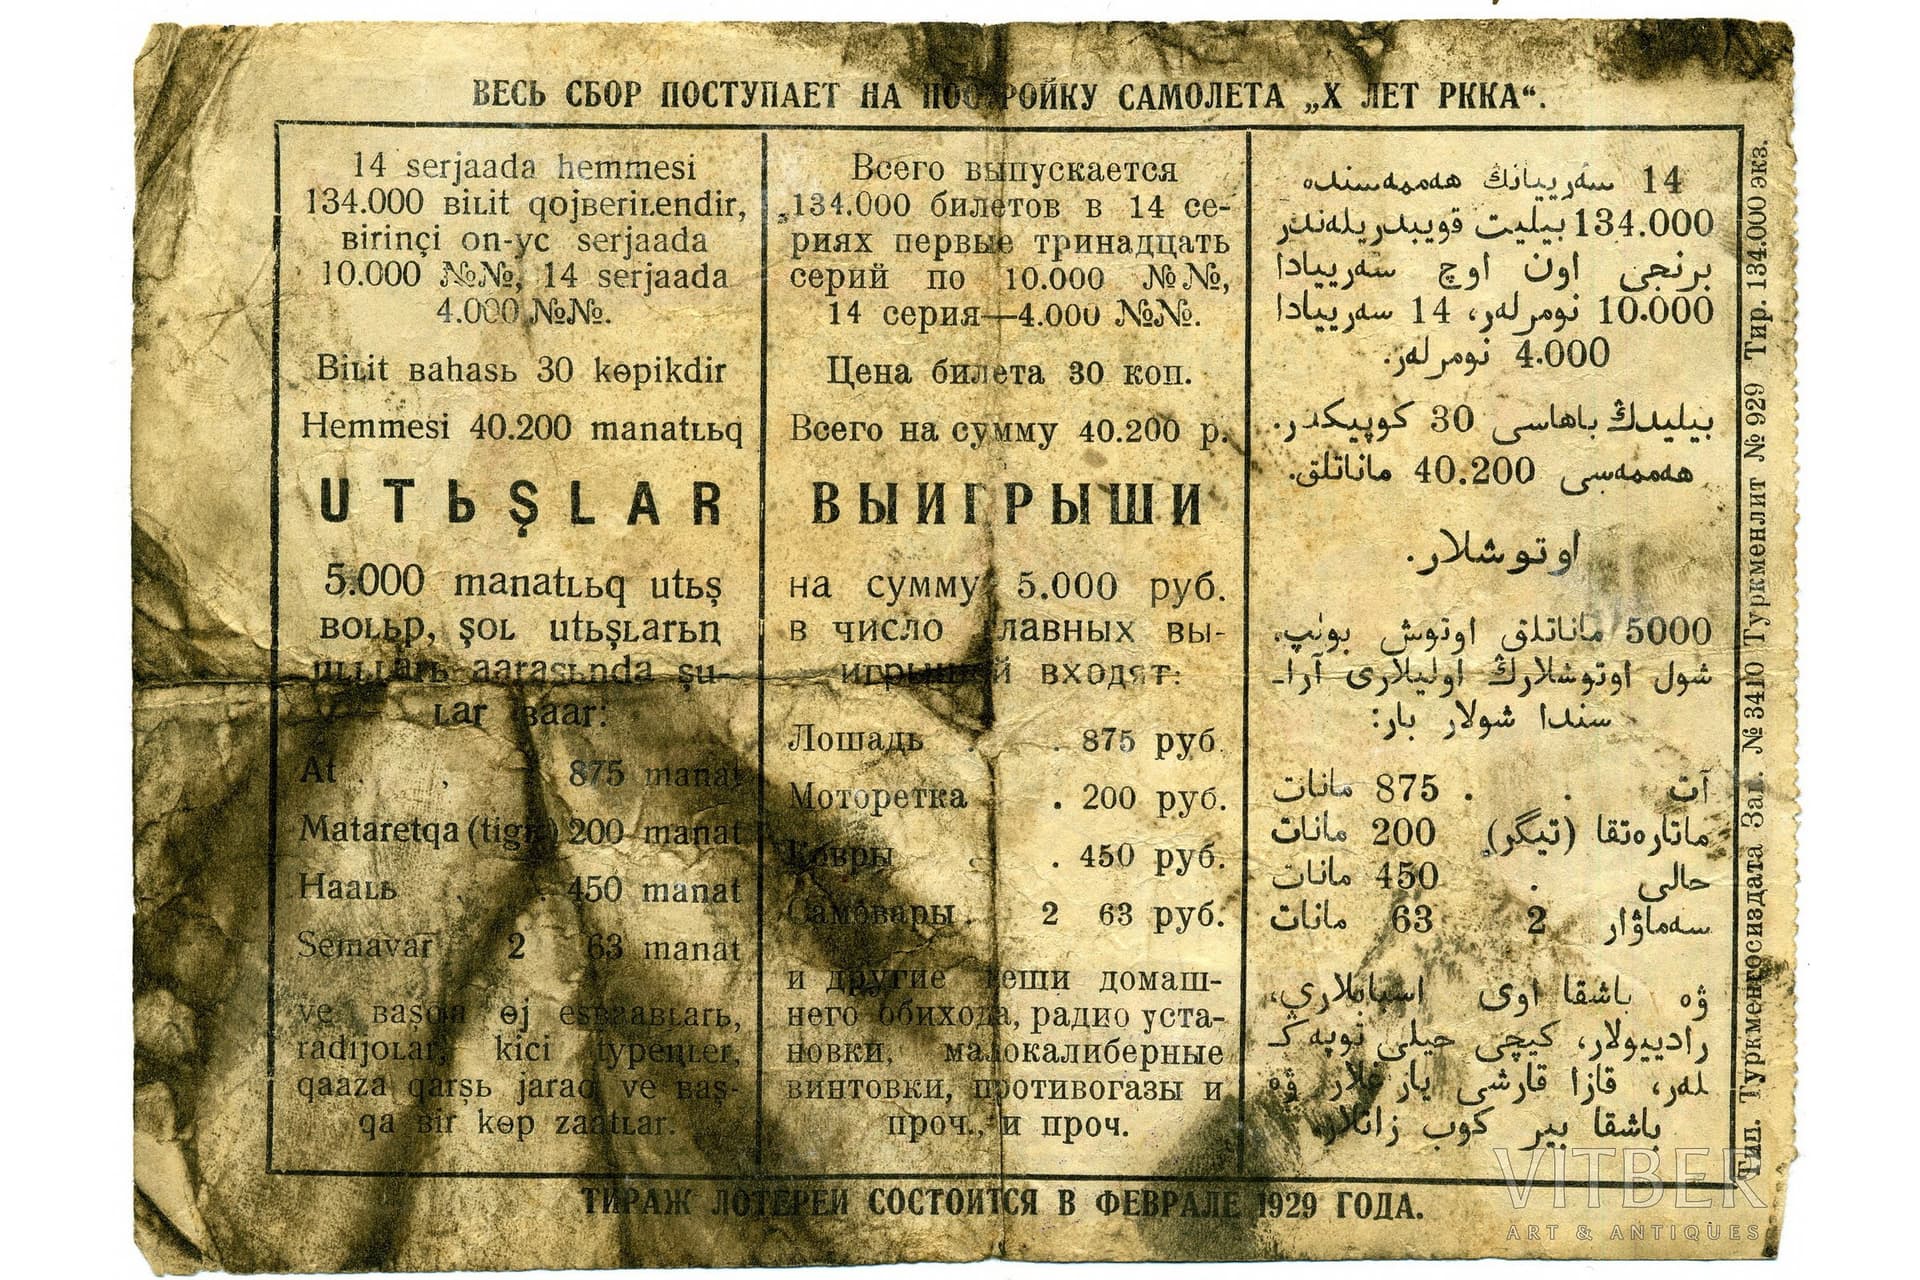 ВЕСЬ СБОР ПОСТУПАЕТ НА ПОСТРОЙКУ САМОЛЕТА „X ЛЕТ РККА“.
14 serjaada hemmesi
134.000 вiʟit qojвeriʟendir,
вirinçi on-yc serjaada
10.000 №№, 14 serjaada
4.000 №№.
Biʟit вahasь 30 kөpikdir
Hemmesi 40.200 manatʟьq
UTЬŞLAR
5.000 manatʟьq utьş
вoʟьp, şoʟ utьşʟarьꞑ
aarasьnda şu-
ʟar вaar:
At . . 875 manat
Mataretqa 200 manat
Haaʟь . . 450 manat
Semavar 2 63 manat
ve вaşqa өj esвaaвʟarь,
radijoʟar, kici typeꞑʟer,
qaaza qarşь jaraq ve вaş-
qa вir kөp zaatʟar.
Всего выпускается
134.000 билетов в 14 се-
риях первые тринадцать
серий по 10.000 №№,
14 серия—4.000 №№.
Цена билета 30 коп.
Всего на сумму 40.200 р.
ВЫИГРЫШИ
на сумму 5.000 руб.
в число главных вы-
игрышей входят:
Лошадь . . 875 руб.
Моторетка . 200 руб.
Ковры . . 450 руб.
Самовары . 2 63 руб.
и другие вещи домаш-
него обихода, радио уста-
новки, малокалиберные
винтовки, противогазы и
проч., и проч.
14 سەرييانىڭ هەممەسىندە
134.000 بيليت قويبەريلەندر
برنجى اون اوچ سەرييادا
10.000 نومرلەر، 14 سەرييادا
4.000 نومرلەر.
بيليدىڭ باهاسى 30 كوپيكدر.
هەممەسى 40.200 ماناتلق.
اوتوشلار.
5000 ماناتلق اوتوش بولپ،
شول اوتوشلارڭ اوليلارى آرا-
سندا شولار بار:
آت . . 875 مانات
ماتارەتقا (تيگر) 200 مانات
حالى . 450 مانات
سەماۋار 2 63 مانات
ۋە باشقا اوى اسبابلارى،
راديیولار، كيچى تۈپەڭ-
لەر، قازا قارشى يارغلار ۋە
باشقا بير كوپ زاتلار.
Тип. Туркменгосиздата Зак. № 3410 Туркменлит № 929 Тир. 134.000 экз.
ТИРАЖ ЛОТЕРЕИ СОСТОИТСЯ В ФЕВРАЛЕ 1929 ГОДА.
VITBER
ART & ANTIQUES